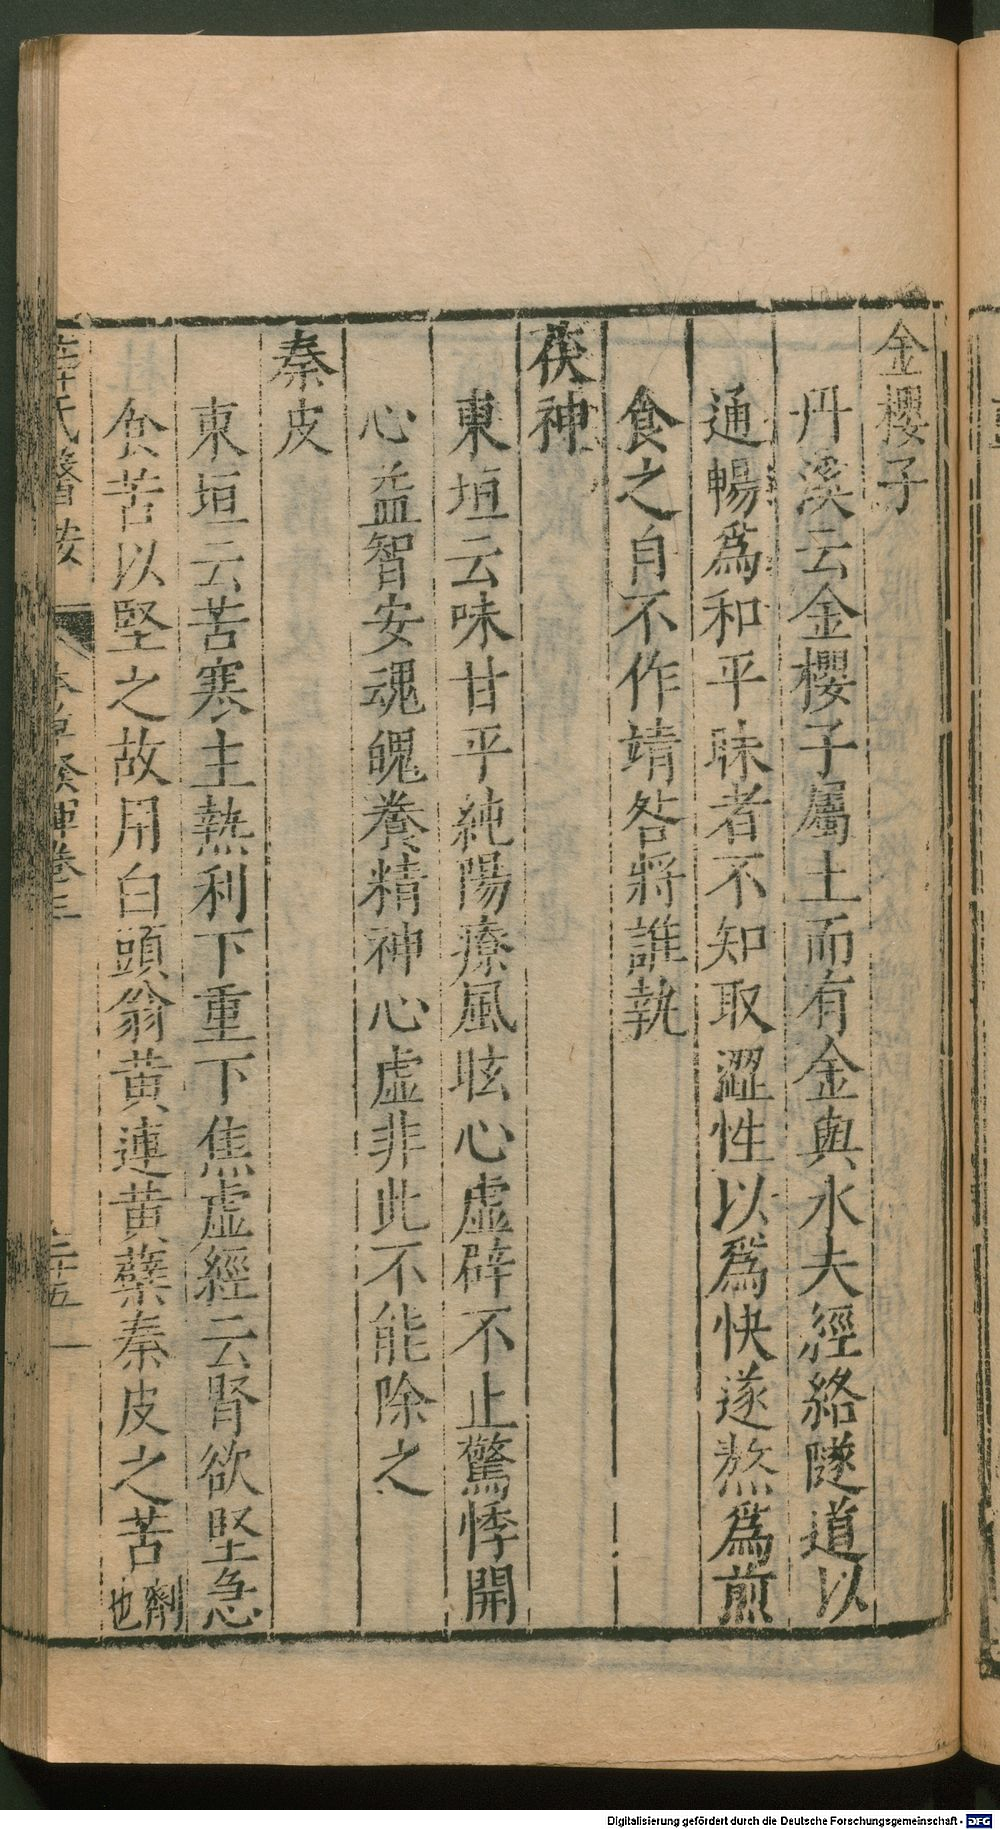 金櫻子
丹溪云金櫻子屬土而有金與水夫經絡隧道以
通暢爲和平昧者不知取澀性以爲快遂熬爲煎
食之自不作靖咎將誰執
茯神
東垣云味甘平純陽療風眩心虛辟不止驚悸開
心益智安魂魄養精神心虛非此不能除之
秦皮
東垣云苦寒主熱利下重下焦虛經云腎欲堅急
食苦以堅之故用白頭翁黃連黃蘗秦皮之苦劑也
薛氏醫按 本草發揮卷三 三十五
Digitalisierung gefördert durch die Deutsche Forschungsgemeinschaft - DFG